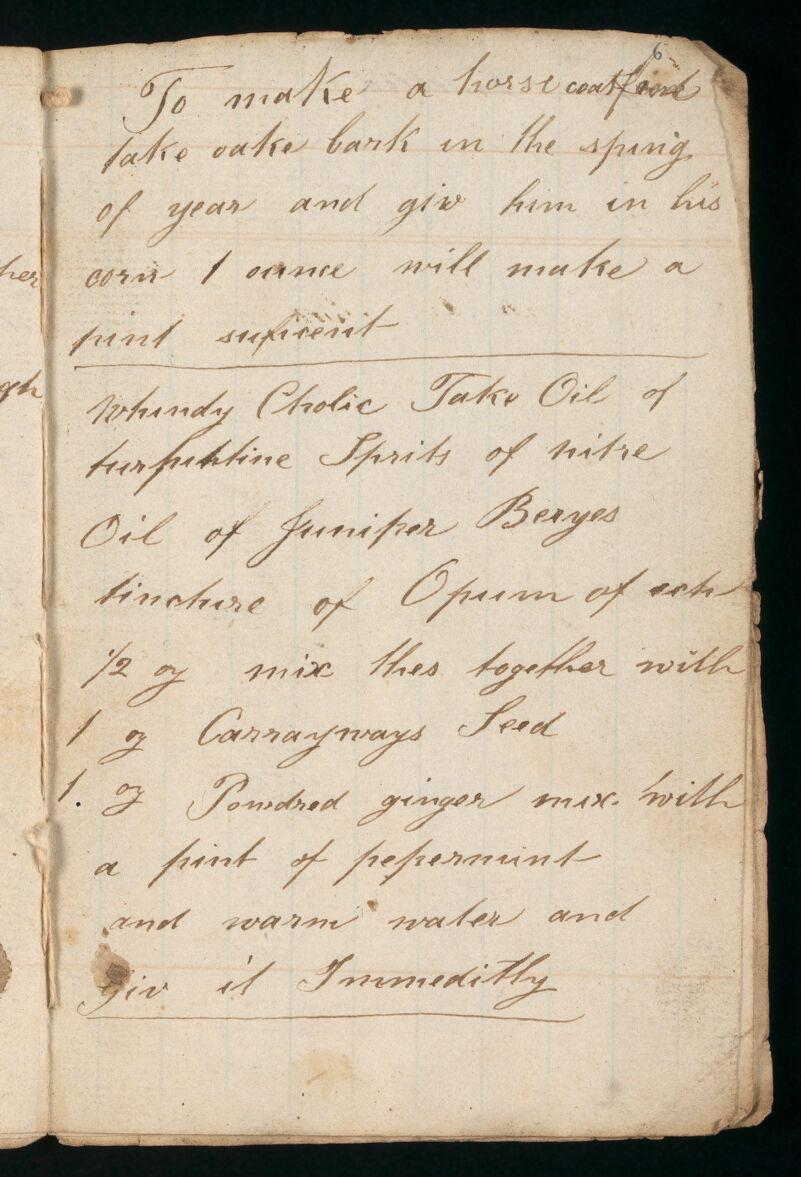 6
To make a horse coat find
take oake bark in the spring
of year and giv him in his
corn 1 ounce will make a
pint suficent
Whindy Cholic Take Oil of
turpintine Sprits of nitre
Oil of Juniper Beryes
tincture of Opum of ech
1/2 oz mix thes together with
1 oz Carrayways Seed
1. oz Powdred ginger mix. with
a pint of pepermint
and warm water and
giv it Immeditly
her
gh